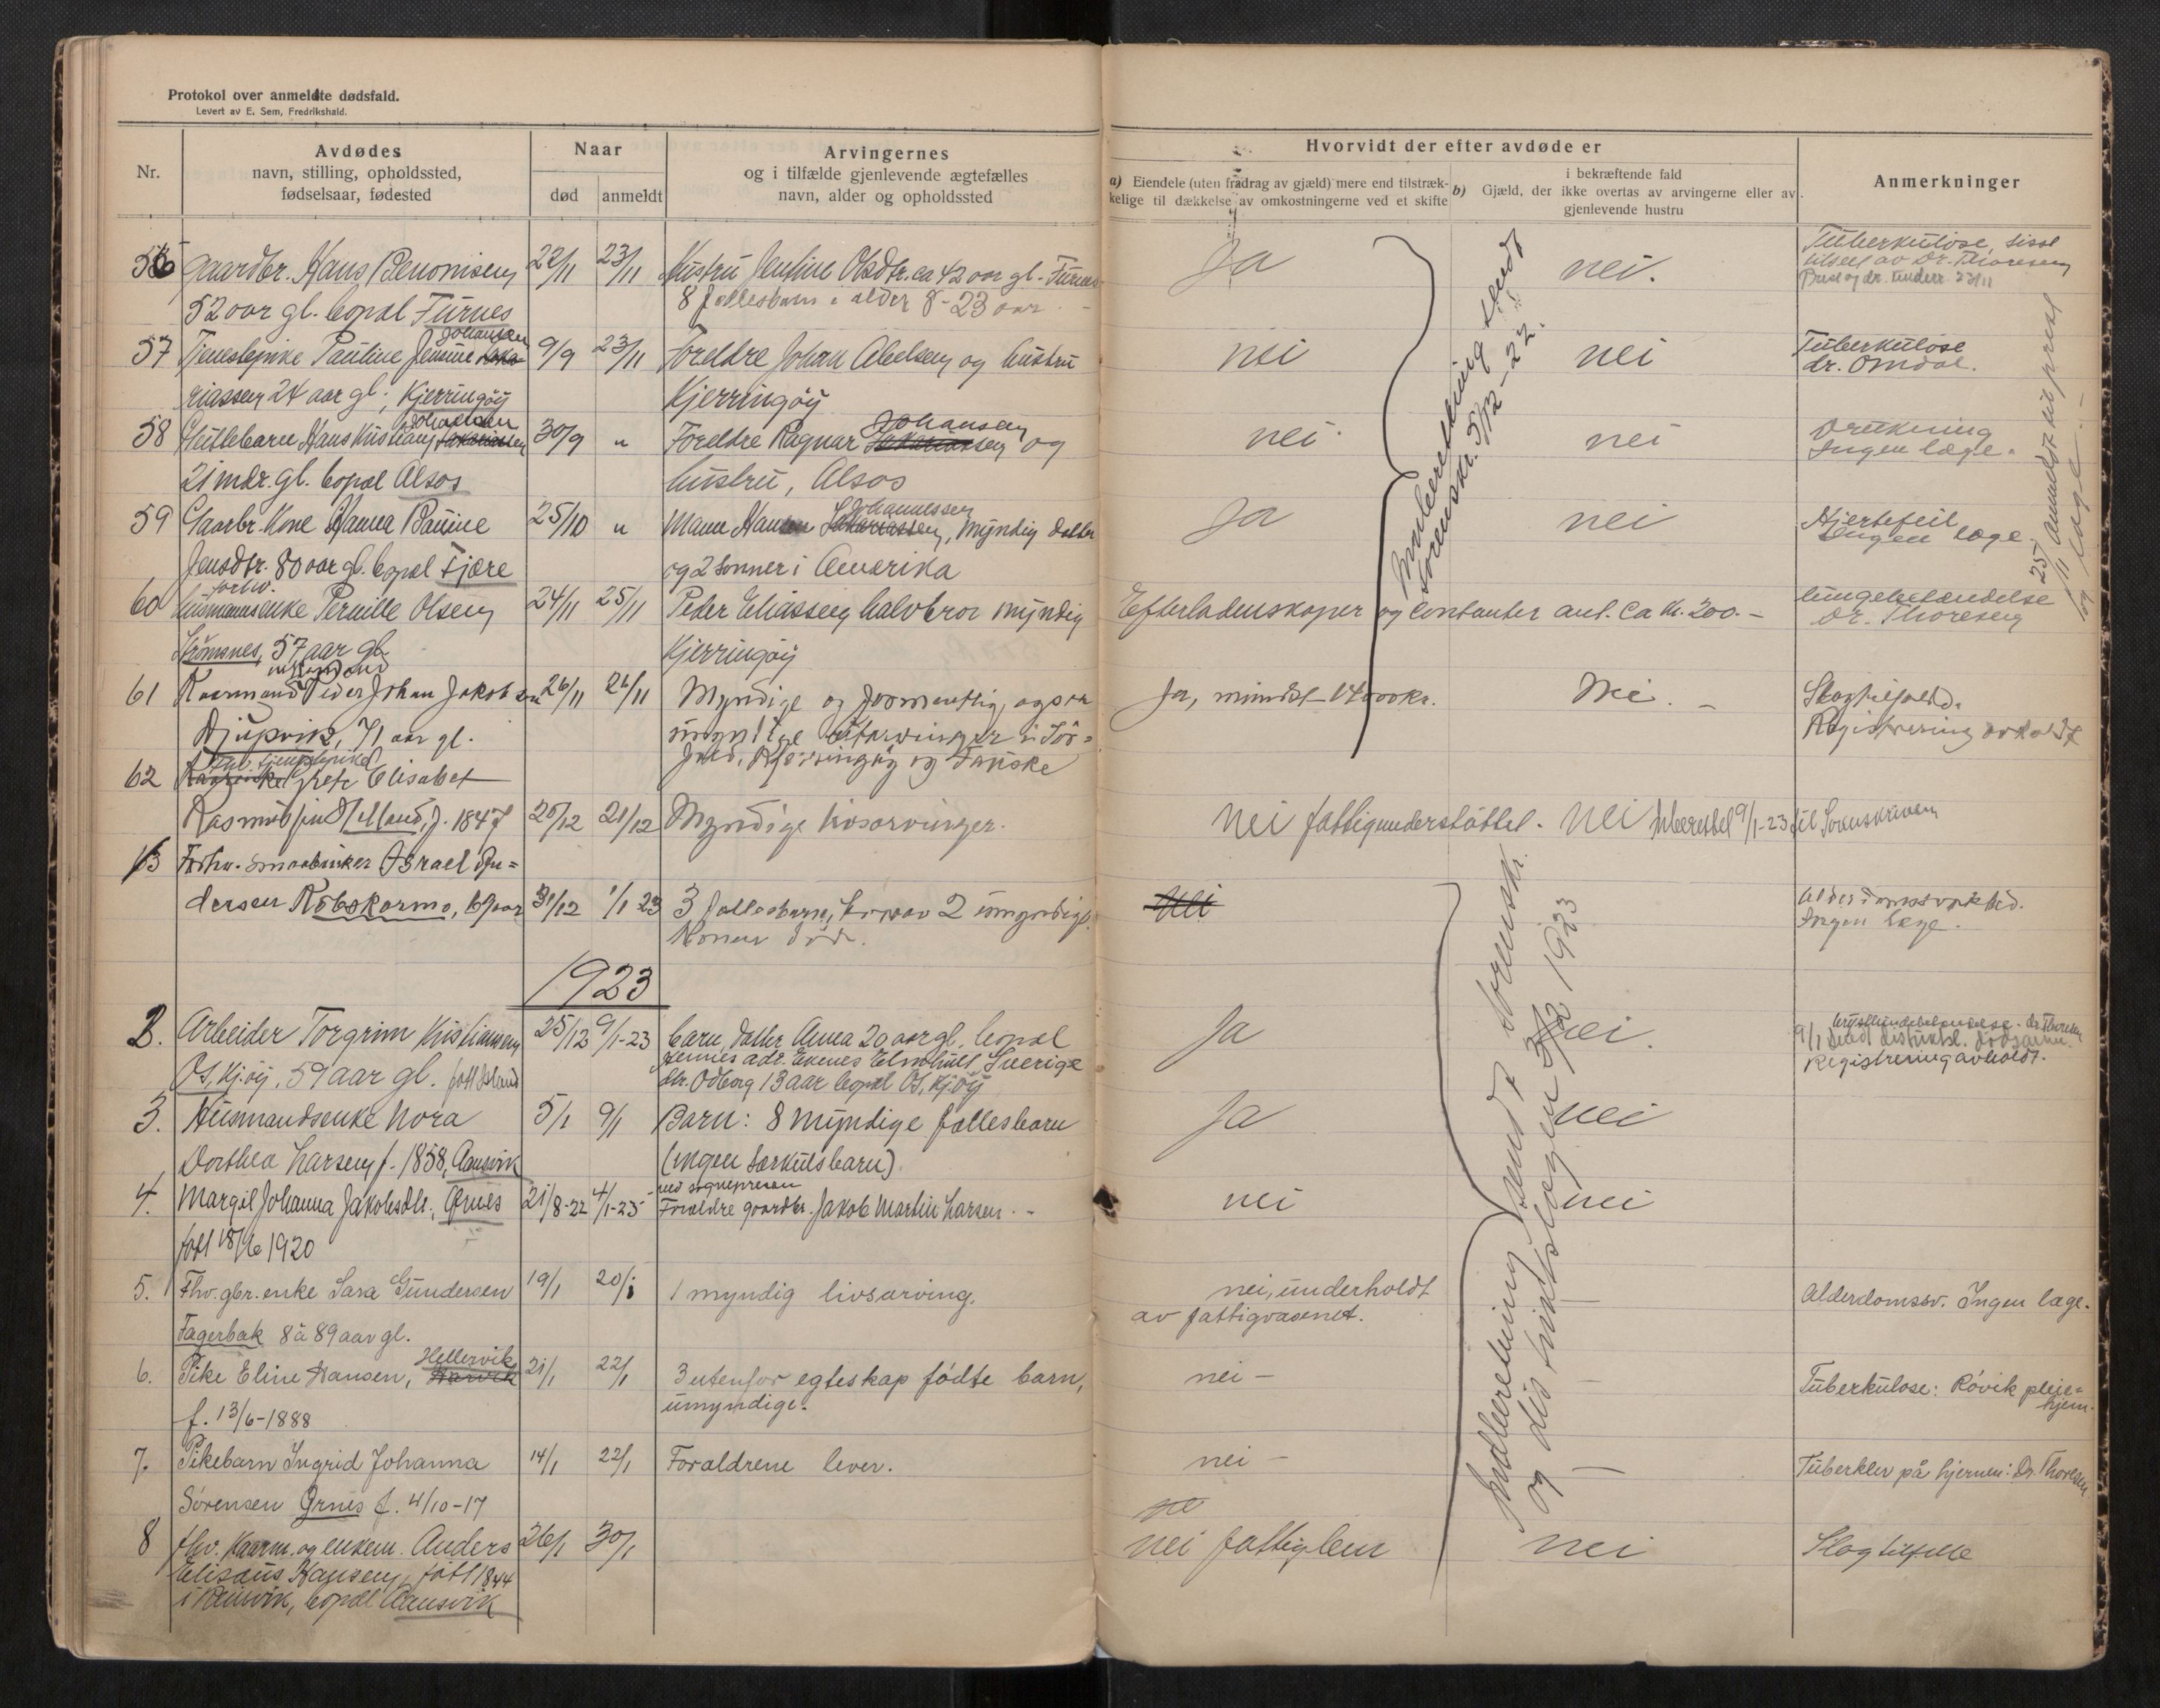 Protokol over anmeldte dødsfald.
Levert av E. Sem, Fredrikshald.
Nr.
Avdødes
navn, stilling, opholdssted,
fødselsaar, fødested
Naar
død
anmeldt
Arvingernes
og i tilfælde gjenlevende ægtefælles
navn, alder og opholdssted
Hvorvidt der efter avdøde er
a) Eiendele (uten fradrag av gjæld) mere end tilstræk-
kelige til dækkelse av omkostningerne ved et skifte
b) i bekræftende fald
Gjæld, der ikke overtas av arvingerne eller av
gjenlevende hustru
Anmerkninger
56 Gaardbr. Hans Benonisen 22/11 23/11 Hustru Jentine Olsdtr. ca 42 aar gl. Furnes Ja nei. Tuberkulose, sisst
tilseet av Dr. Thoresen
Prest og dr. underr. 23/11
52 aar gl. bopæl Furnes 8 fællesbarn i alder 8-23 aar
Johansen
57 Tjenestepike Pauline Jensine 9/9 23/11 Foreldre Johan Abelsen og hustru nei nei Tuberkulose
dr. Omdal.
riassen 24 aar gl., Kjerringøy Kjerringøy
Johansen
58 Guttebarn Hans Kristian Sakariassen 30/9 " Foreldre Ragnar Sakariassen Johansen og nei nei Drukning
Ingen læge.
21 mdr. gl. bopæl Alsos hustru, Alsos
59 Gaarbr. Kone Hanna Pauline 25/10 " Mann Hans Sakariassen Johannessen, Myndig datter Ja nei Hjertefeil
Ingen læge
Jensdtr. 80 aar gl. bopæl Fjære og 2 sønner i Amerika
forhv.
60 husmannsenke Pernille Olsen 24/11 25/11 Peder Eliassen halvbror myndig Efterladenskaper og contanter ant. ca kr. 200.- lungebetændelse
Dr. Thoresen
Strømsnes, 57 aar gl. Kjerringøy
Indberetning sendt
Sorenskr. 5/12-22.
25/11 anmeldt til prest
og læge.-
61 Kaarmand Peder Johan Jakobsen 26/11 26/11 Myndige og formentlig ogsaa Ja, mindst 14000 kr. Nei. - Slagtilfæld.
Djupvik, 71 aar gl. umyndige utarvinger i Sør-
fold, Kjerringøy og Fauske Registrering avholdt
fhv. tjenestepike
62 Grete Elisabet
Rasmussen Helland, f. 1847 20/12 21/12 Myndige livsarvinger. nei fattigunderstøttet. nei Inberettet 9/1-23 til Sorenskriveren
63 Forhv. smaabruker Israel An-
dersen Røbskarmo, 69 aar 31/12 1/1 23 3 fællesbarn, hvorav 2 umyndige. Nei Alderdomssvakhed.
Konen død. Ingen læge.
1923
2. Arbeider Torgrim Kristiansen 25/12 9/1-23 barn, datter Anna 20 aar gl. bopæl Ja nei. brysthindebetændelse. dr. Thoresen
Os, Kj.øy, 59 aar gl. født Island Hennes adr. Ekenes Elmhult, Sverige
dtr. Odborg 13 aar bopæl Os, Kj.øy
Registrering avholdt.
3. Husmandsenke Nora 5/1 9/1 Barn: 8 myndige fællesbarn Ja nei
Dorthea Larsen f. 1858, Aansvik (ingen særkulsbarn).
ved sognepresten
4. Margit Johanna Jakobsdtr., Ørnes 21/8-22 4/1-23 Foreldre gaardbr. Jakob Martin Larsen.- nei nei
født 18/6 1920
5. Fhv. gbr. enke Sara Gundersen 19/1 20/1 1 myndig livsarving. nei, underholdt - Alderdomssv. Ingen læge.
Fagerbak 8 à 89 aar gl. av fattigvæsenet.
6. Pike Eline Hansen, Hellervik 21/1 22/1 3 utenfor egteskap fødte barn, nei - - Tuberkulose: Røvik pleie-
hjem.
f. 13/6-1888 umyndige.
7. Pikebarn Ingrid Johanna 14/1 22/1 Forældrene lever. nei - - Tuberkler på hjernen: Dr. Thoresen.
Sørensen Ørnes f. 4/10-17
8 fhv. Kaarm. og enkem. Anders 26/1 30/1 nei fattiglem nei Slagtilfelle
Elisæus Hansen, født 1844
i Reinvik, bopæl Aansvik
Indberetning sendt Sorenskr.
og distriktslægen 3/2 1923